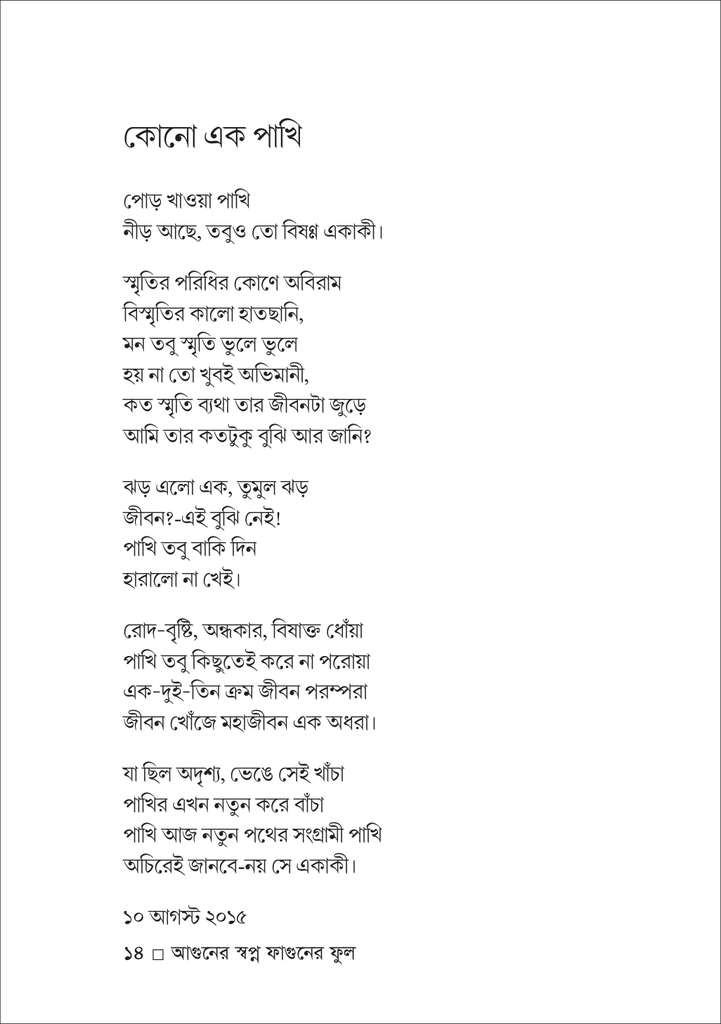 কোনো এক পাখি
পোড় খাওয়া পাখি
নীড় আছে, তবুও তো বিষণ্ণ একাকী।
স্মৃতির পরিধির কোণে অবিরাম
বিস্মৃতির কালো হাতছানি,
মন তবু স্মৃতি ভুলে ভুলে
হয় না তো খুবই অভিমানী,
কত স্মৃতি ব্যথা তার জীবনটা জুড়ে
আমি তার কতটুকু বুঝি আর জানি?
ঝড় এলো এক, তুমুল ঝড়
জীবন?-এই বুঝি নেই!
পাখি তবু বাকি দিন
হারালো না খেই।
রোদ-বৃষ্টি, অন্ধকার, বিষাক্ত ধোঁয়া
পাখি তবু কিছুতেই করে না পরোয়া
এক-দুই-তিন ক্রম জীবন পরম্পরা
জীবন খোঁজে মহাজীবন এক অধরা।
যা ছিল অদৃশ্য, ভেঙে সেই খাঁচা
পাখির এখন নতুন করে বাঁচা
পাখি আজ নতুন পথের সংগ্রামী পাখি
অচিরেই জানবে-নয় সে একাকী।
১০ আগস্ট ২০১৫
১৪ □ আগুনের স্বপ্ন ফাগুনের ফুল